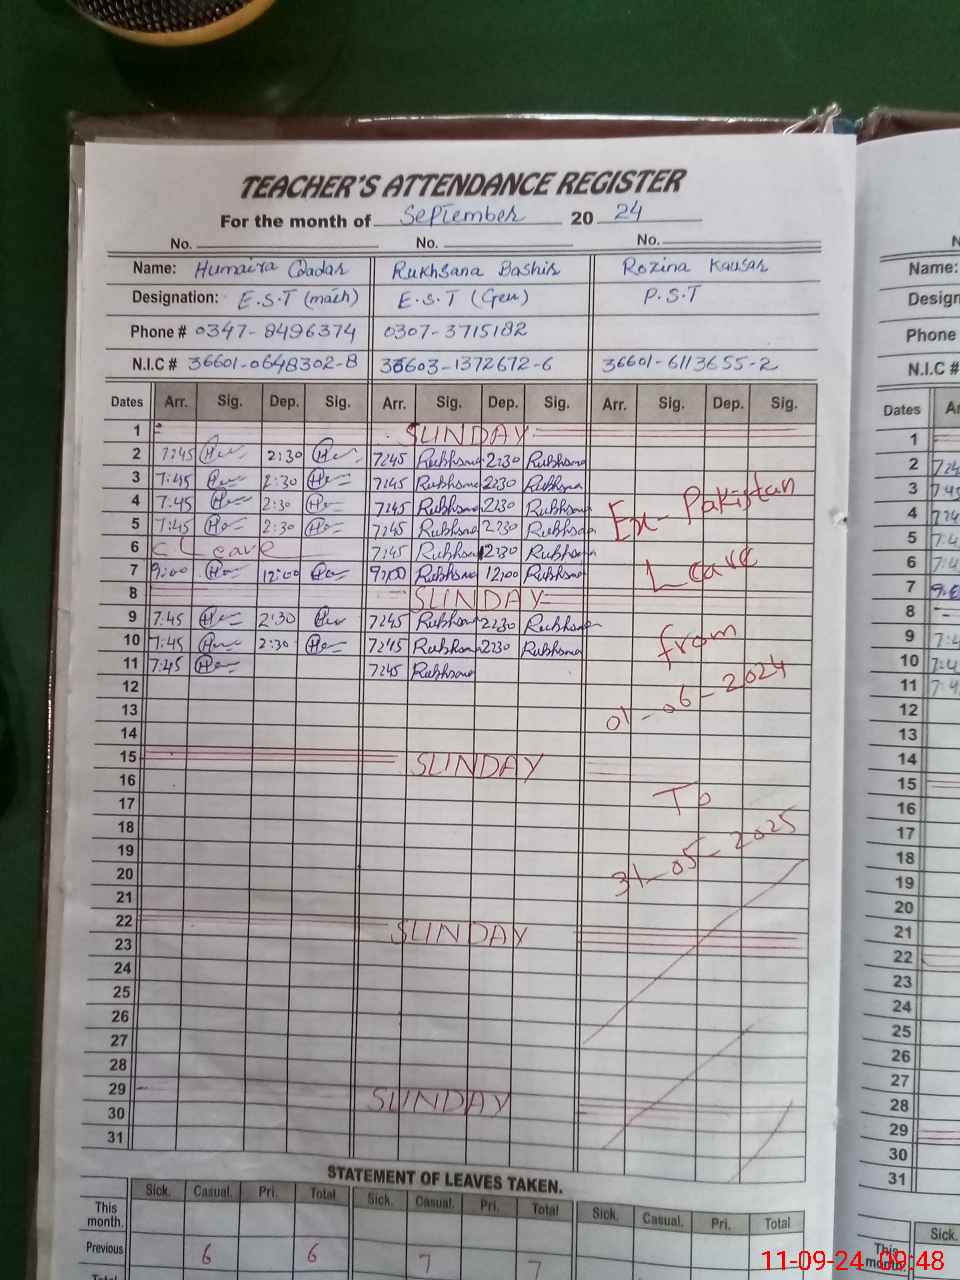 TEACHER'S ATTENDANCE REGISTER
For the month of September 20 24
No. No. No.
Name: Humaira Qadar Rukhsana Bashir Rozina Kausar
Designation: E.S.T (math) E.S.T (Gen) P.S.T
Phone # 0347-8496374 0307-3715182
N.I.C # 36601-0648302-8 36603-1372672-6 36601-6113655-2
Dates Arr. Sig. Dep. Sig. Arr. Sig. Dep. Sig. Arr. Sig. Dep. Sig.
1 SUNDAY
2 7:45 2:30 7:45 Rukhsana 2:30 Rukhsana
3 7:45 2:30 7:45 Rukhsana 2:30 Rukhsana
4 7:45 2:30 7:45 Rukhsana 2:30 Rukhsana
5 7:45 2:30 7:45 Rukhsana 2:30 Rukhsana
6 C Leave 7:45 Rukhsana 2:30 Rukhsana
7 9:00 12:00 9:00 Rukhsana 12:00 Rukhsana
8 SUNDAY
9 7:45 2:30 7:45 Rukhsana 2:30 Rukhsana
10 7:45 2:30 7:45 Rukhsana 2:30 Rukhsana
11 7:45 7:45 Rukhsana
12
13
14
15 SUNDAY
16
17
18
19
20
21
22 SUNDAY
23
24
25
26
27
28
29 SUNDAY
30
31
Ex-Pakistan
Leave
from
01-06-2024
To
31-05-2025
STATEMENT OF LEAVES TAKEN.
Sick. Casual. Pri. Total Sick. Casual. Pri. Total Sick. Casual. Pri. Total
This
month.
Previous 6 6 7 7
Total
Name:
Phone #
N.I.C #
Dates
1
2
3
4
5
6
7
8
9
10
11
12
13
14
15
16
17
18
19
20
21
22
23
24
25
26
27
28
29
30
31
Sick.
This
month.
11-09-24 09:48